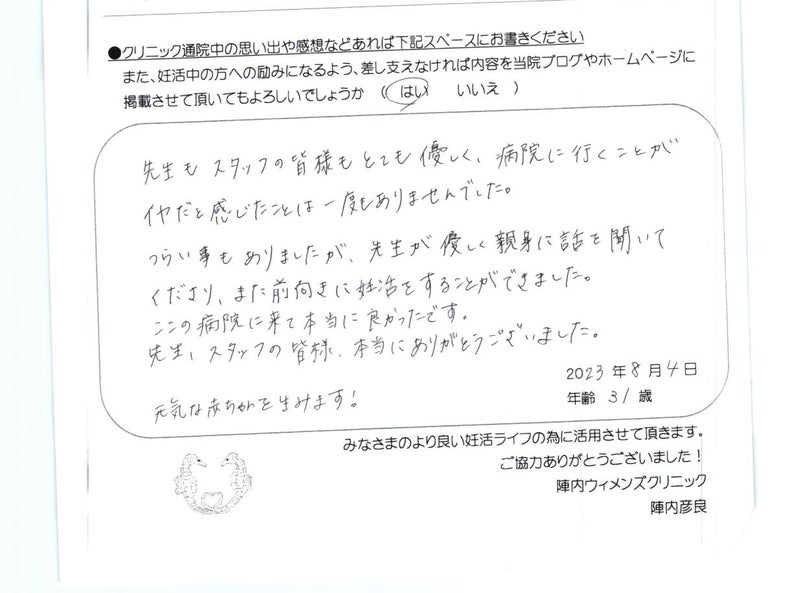 ●クリニック通院中の思い出や感想などあれば下記スペースにお書きください
また、妊活中の方への励みになるよう、差し支えなければ内容を当院ブログやホームページに
掲載させて頂いてもよろしいでしょうか （ はい　いいえ ）
先生も スタッフの皆様も とても 優しく、病院に行くことが
イヤだと感じたことは一度もありませんでした。
つらい事も ありましたが、先生が 優しく親身に話を聞いて
くださり、また前向きに妊活をすることができました。
ここの病院に来て本当に良かったです。
先生、スタッフの皆様、本当にありがとうございました。
元気な赤ちゃんを生みます！
2023 年 8 月 4 日
年齢 31 歳
みなさまのより良い妊活ライフの為に活用させて頂きます。
ご協力ありがとうございました！
陣内ウィメンズクリニック
陣内彦良